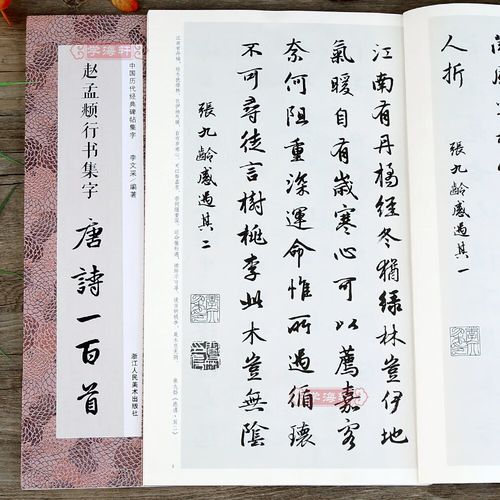 学海轩
中国历代经典碑帖集字
李文采/编著
赵孟頫行书集字
唐詩一百首
浙江人民美术出版社
江南有丹橘經冬猶綠林豈伊地
氣暖自有歲寒心可以薦嘉客
奈何阻重深運命惟所遇循環
不可尋徒言樹桃李此木豈無陰
張九齡感遇其二
張九齡《感遇·其二》
學海軒
人折
張九齡感遇其一